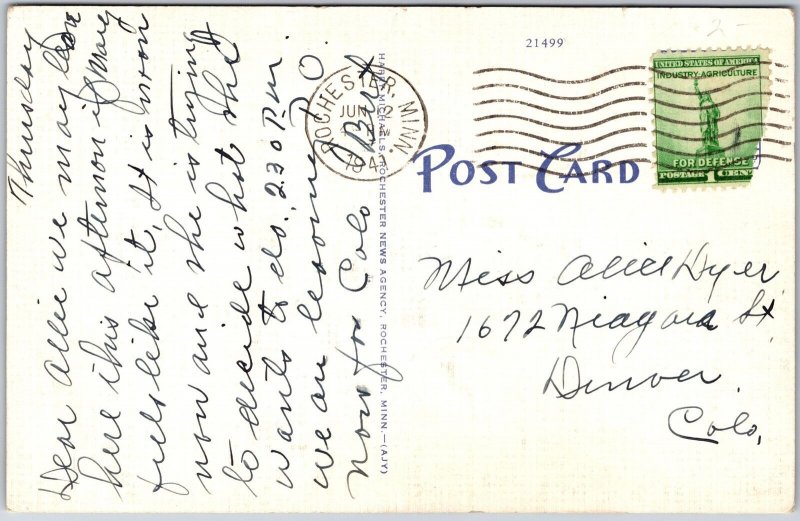 Thursday
Dear Allie we may leave
here this afternoon if Mary
feels like it, It is noon
now and she is trying
to decide what she
wants to do. 2.30 P.M.
we are leaving
now for Colo
HAROLD MICHAELS, ROCHESTER NEWS AGENCY, ROCHESTER, MINN.—(AJY)
21499
ROCHESTER, MINN.
JUN 12
UNITED STATES OF AMERICA
INDUSTRY-AGRICULTURE
FOR DEFENSE
POSTAGE 1 CENT
POST CARD
Miss Alice Dyer
1672 Niagara St
Denver.
Colo,